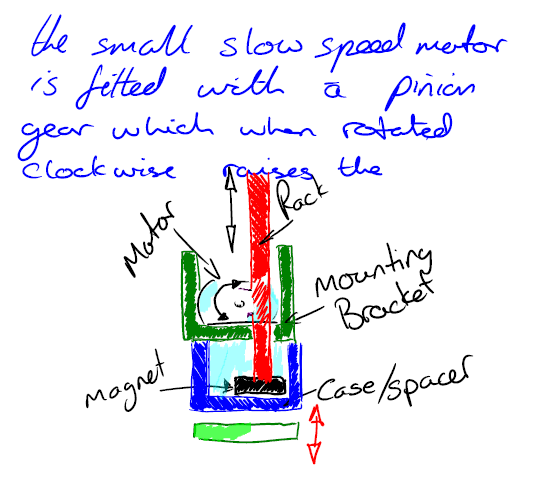 the small slow speed motor
is fitted with a pinion
gear which when rotated
clockwise raises the
Rack
Motor
Mounting
Bracket
magnet
Case/spacer